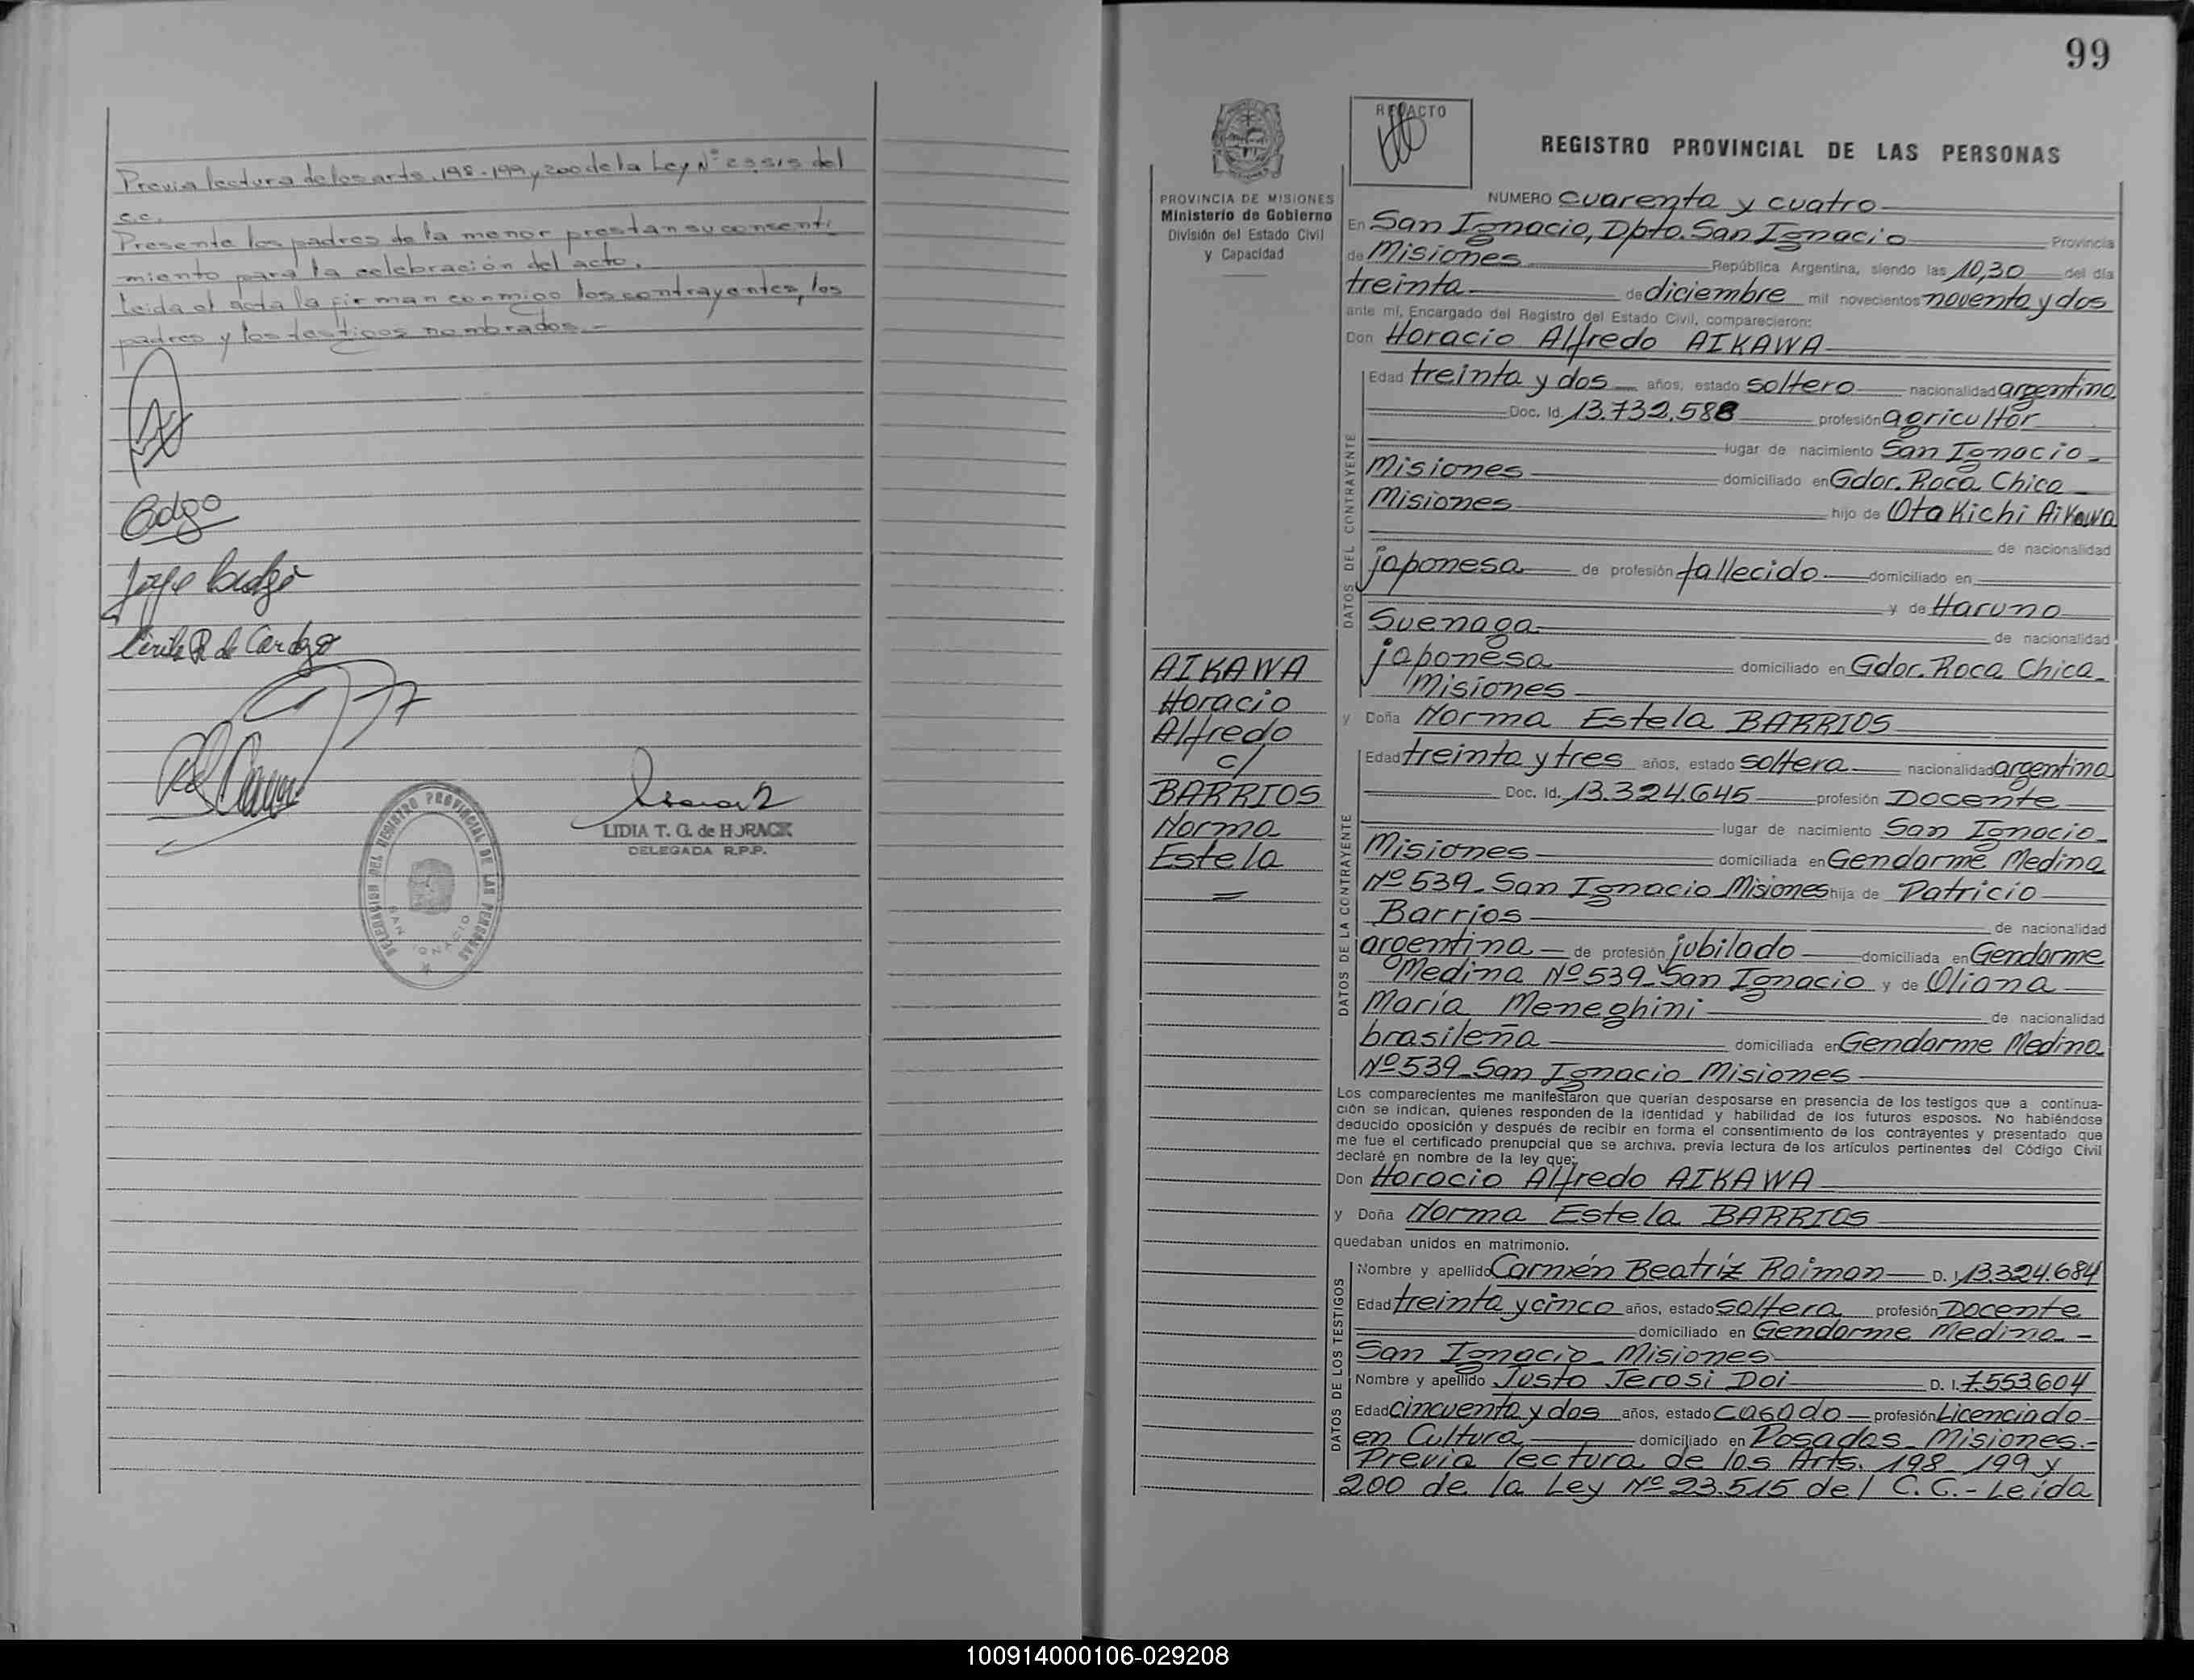 Previa lectura de los arts. 198-199 y 200 de la Ley Nº 23515 del
C.C.
Presente los padres de la menor prestan su consenti
miento para la celebración del acto.
Leida el acta la firman conmigo los contrayentes, los
padres y los testigos nombrados.-
LIDIA T. G. de HORACK
DELEGADA R.P.P.
DELEGACION DEL REGISTRO PROVINCIAL DE LAS PERSONAS
SAN IGNACIO
99
PROVINCIA DE MISIONES
Ministerio de Gobierno
División del Estado Civil
y Capacidad
AIKAWA
Horacio
Alfredo
c/
BARRIOS
Norma
Estela
REGISTRO PROVINCIAL DE LAS PERSONAS
NUMERO cuarenta y cuatro
En San Ignacio, Dpto. San Ignacio Provincia
de Misiones República Argentina, siendo las 10,30 del día
treinta de diciembre mil novecientos noventa y dos
ante mí, Encargado del Registro del Estado Civil, comparecieron:
Don Horacio Alfredo AIKAWA
DATOS DEL CONTRAYENTE
Edad treinta y dos años, estado soltero nacionalidad argentina
Doc. Id. 13.732.588 profesión agricultor
lugar de nacimiento San Ignacio
Misiones domiciliado en Gdor. Roca Chica
Misiones hijo de Otakichi Aikawa
de nacionalidad
japonesa de profesión fallecido domiciliado en
y de Haruno
Suenaga de nacionalidad
japonesa domiciliado en Gdor. Roca Chica
Misiones
y Doña Norma Estela BARRIOS
DATOS DE LA CONTRAYENTE
Edad treinta y tres años, estado soltera nacionalidad argentina
Doc. Id. 13.324.645 profesión Docente
lugar de nacimiento San Ignacio
Misiones domiciliada en Gendarme Medina
Nº 539 - San Ignacio Misiones hija de Patricio
Barrios de nacionalidad
argentina de profesión jubilado domiciliada en Gendarme
Medina Nº 539 - San Ignacio y de Oliana
María Meneghini de nacionalidad
brasileña domiciliada en Gendarme Medina
Nº 539 - San Ignacio - Misiones
Los comparecientes me manifestaron que querían desposarse en presencia de los testigos que a continua-
ción se indican, quienes responden de la identidad y habilidad de los futuros esposos. No habiéndose
deducido oposición y después de recibir en forma el consentimiento de los contrayentes y presentado que
me fue el certificado prenupcial que se archiva, previa lectura de los artículos pertinentes del Código Civil
declaré en nombre de la ley que:
Don Horacio Alfredo AIKAWA
y Doña Norma Estela BARRIOS
quedaban unidos en matrimonio.
DATOS DE LOS TESTIGOS
Nombre y apellido Carmén Beatríz Roiman D. I. 13.324.684
Edad treinta y cinco años, estado soltera profesión Docente
domiciliado en Gendarme Medina -
San Ignacio - Misiones
Nombre y apellido Justo Jerosi Doi D. I. 7.553.604
Edad cincuenta y dos años, estado casado profesión Licenciado
en Cultura domiciliado en Posadas - Misiones.-
Previa lectura de los Arts. 198 - 199 y
200 de la Ley Nº 23.515 del C.C.- Leida
100914000106-029208